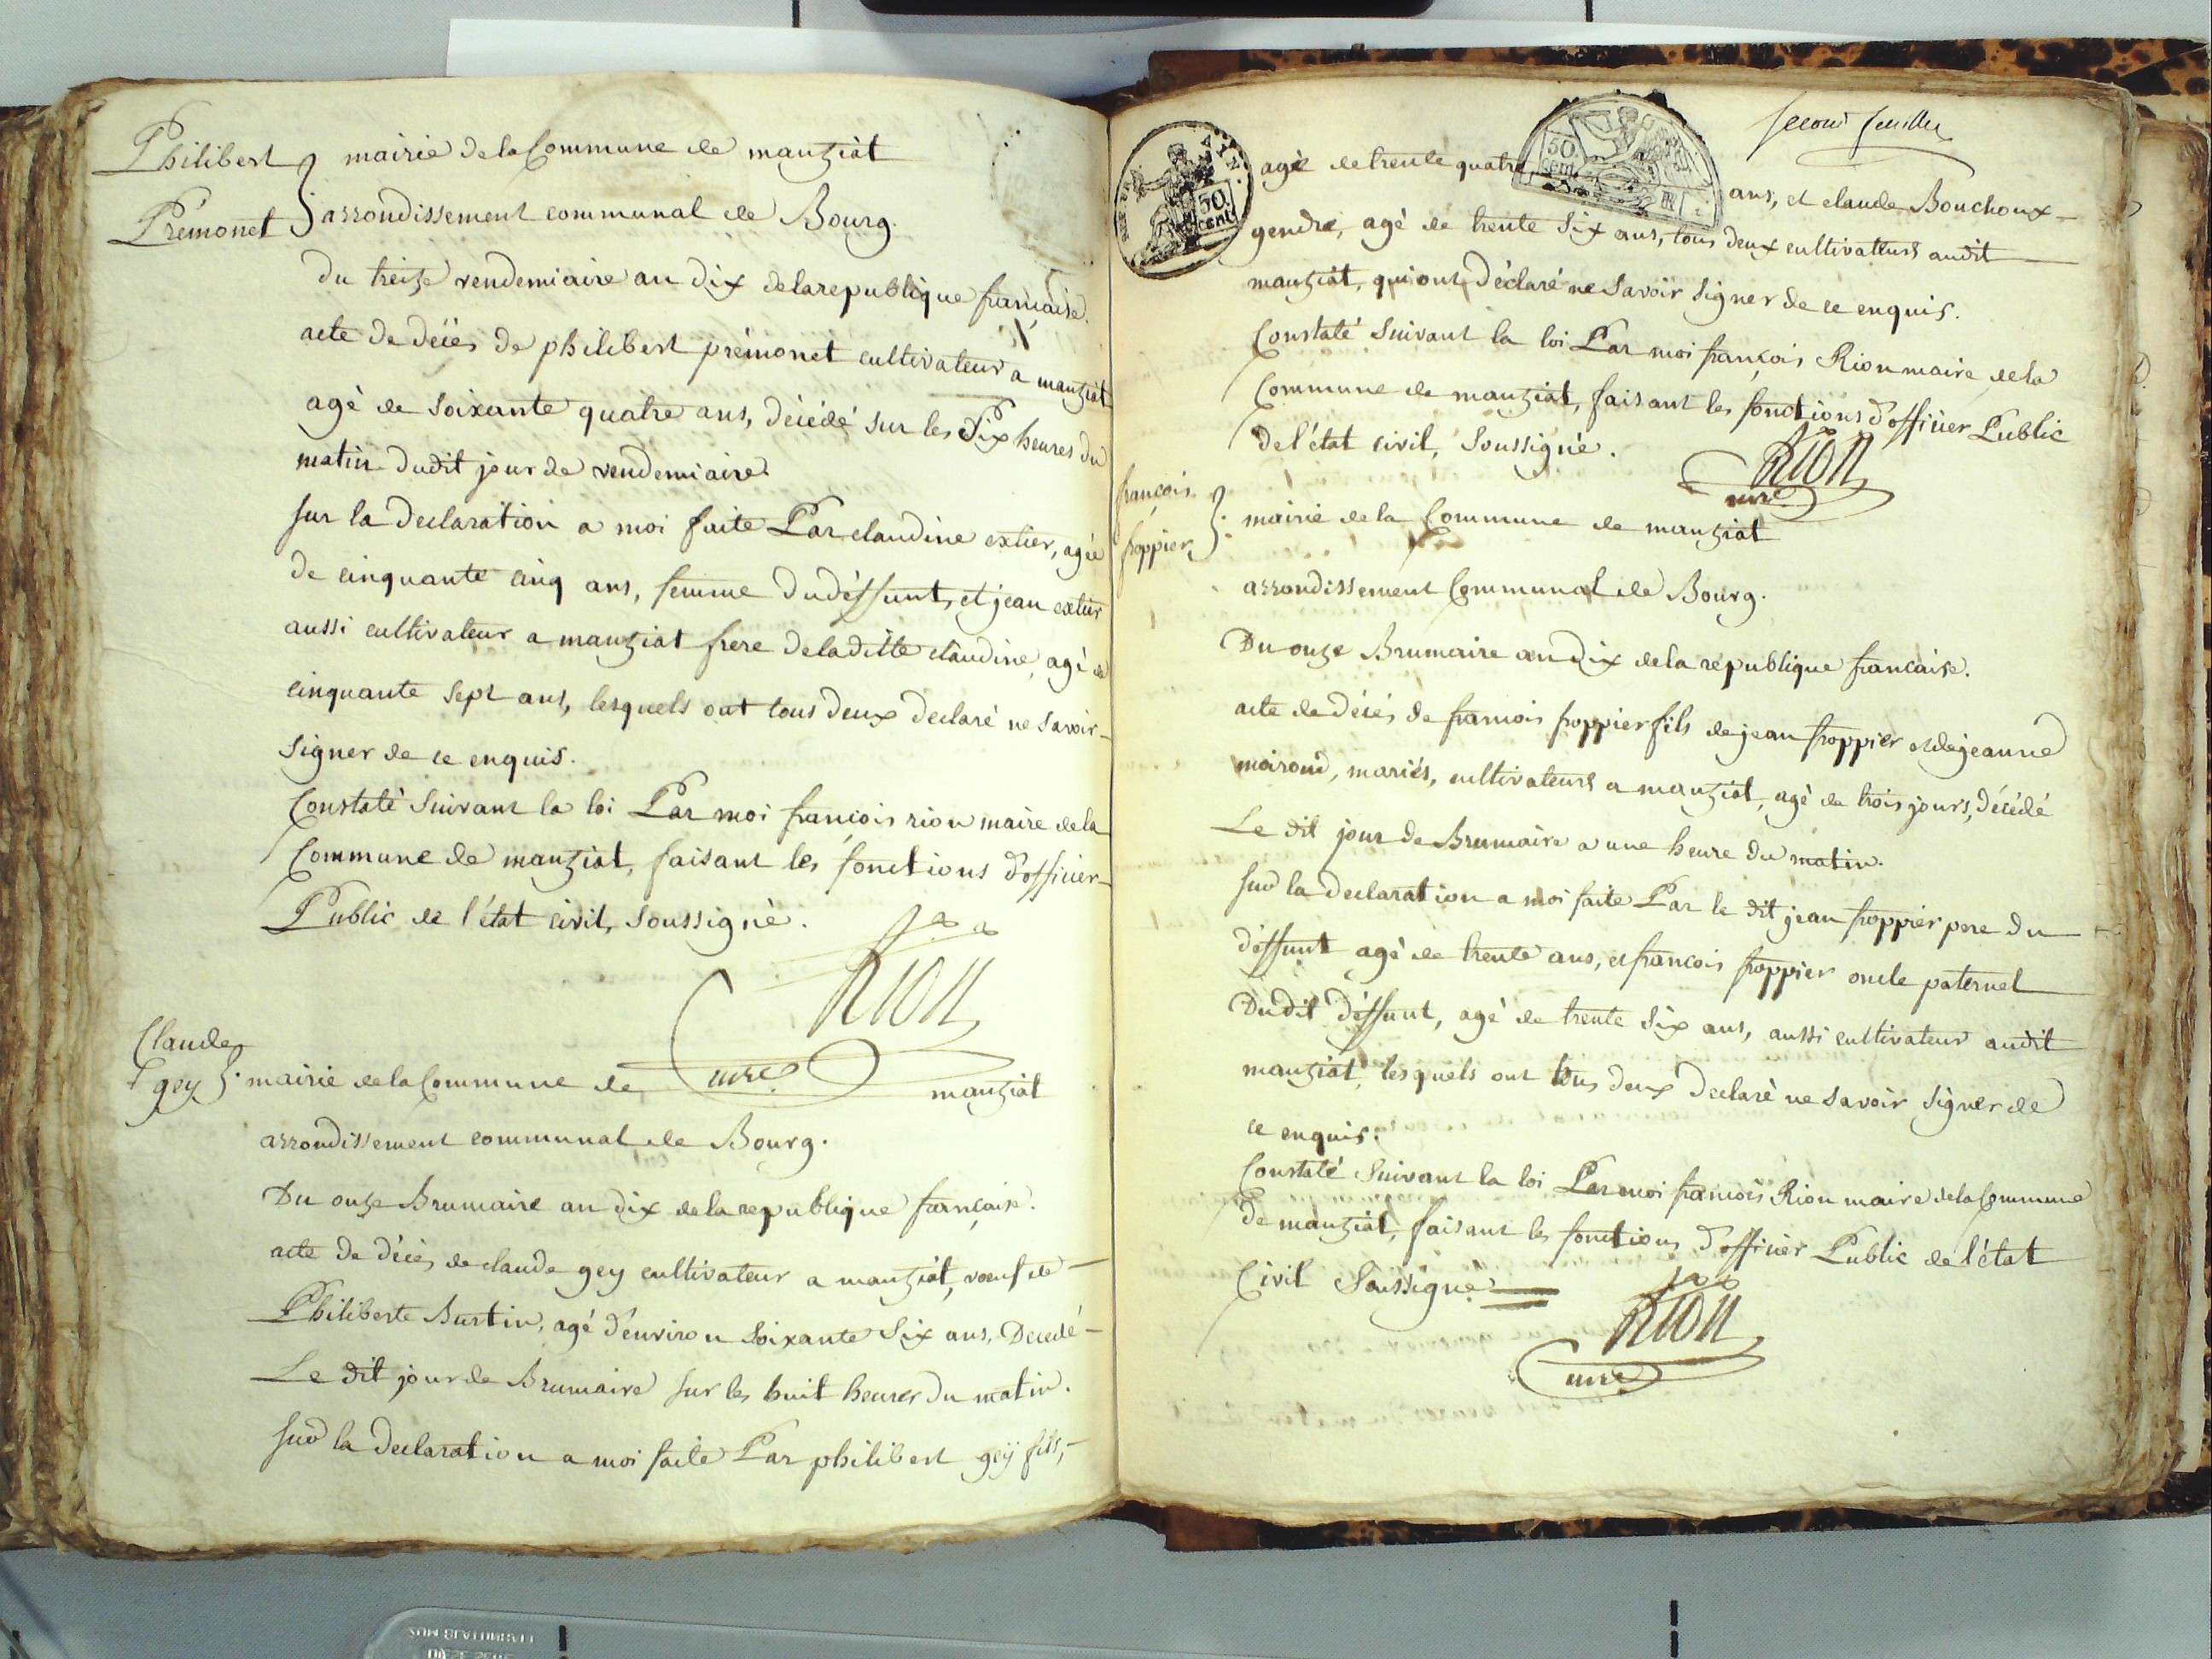 Philibert
Prémonet
mairie de la Commune de manziat
arrondissement communal de Bourg.
du treize vendemiaire an dix de la republique française.
acte de décès de philibert prémonet cultivateur a manziat
agé de soixante quatre ans, décédé sur les Six heures du
matin dudit jour de vendemiaire
sur la declaration a moi faite Par claudine extier, agée
de cinquante cinq ans, femme du déffunt, et jean extier
aussi cultivateur a manziat frere de la ditte claudine, agé de
cinquante sept ans, lesquels ont tous deux declaré ne savoir
signer de ce enquis.
Constaté suivant la loi Par moi françois rion maire de la
Commune de manziat, faisant les fonctions d'officier
Public de l'état civil, soussigné.
Rion
mre
Claude
gey
mairie de la Commune de manziat
arrondissement communal de Bourg.
Du onze Brumaire an dix de la republique française.
acte de décès de claude gey cultivateur a manziat, voeuf de
Philiberte Burtin, agé d'environ soixante Six ans, Decedé
Le dit jour de Brumaire sur les huit heures du matin.
sur la declaration a moi faite Par philibert geÿ fils,
second feuillet
AIN.
50. cent
50. cent.
agé de trente quatre ans, et claude Bouchoux
gendre, agé de trente six ans, tous deux cultivateurs audit
manziat, qui ont déclaré ne savoir signer de ce enquis.
Constaté suivant la loi Par moi françois Rion maire de la
Commune de manziat, faisant les fonctions d'officier Public
de l'état civil, soussigné.
Rion
mre
françois
froppier
mairie de la Commune de manziat
arrondissement Communal de Bourg.
Du onze Brumaire an dix de la republique francaise.
acte de décés de francois froppier fils de jean froppier et de jeanne
moirond, mariés, cultivateurs a manziat, agé de trois jours, décédé
Le dit jour de Brumaire a une heure du matin.
sur la declaration a moi faite Par le dit jean froppier pere du
déffunt agé de trente ans, et francois froppier oncle paternel
Dudit déffunt, agé de trente six ans, aussi cultivateur audit
manziat, lesquels ont tous deux declaré ne savoir signer de
ce enquis.
Constaté suivant la loi Par moi francois Rion maire de la Commune
de manziat, faisant les fonctions d'officier Public de l'état
Civil Soussigné
Rion
mre